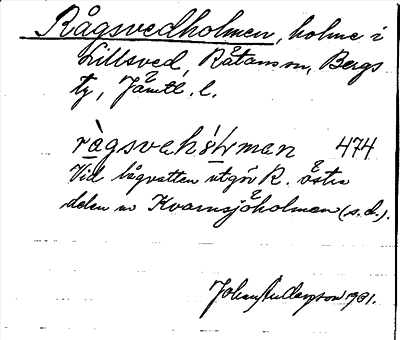 Rågsvedholmen, holme i
Lillsved, Råtans sn, Bergs
tg, Jämtl. l.
rågsvehɷ̀ɫman 474
Vid lågvatten utgör R. östra
delen av Kvarnsjöholmen (s.d.).
Johan Anderson 1931.